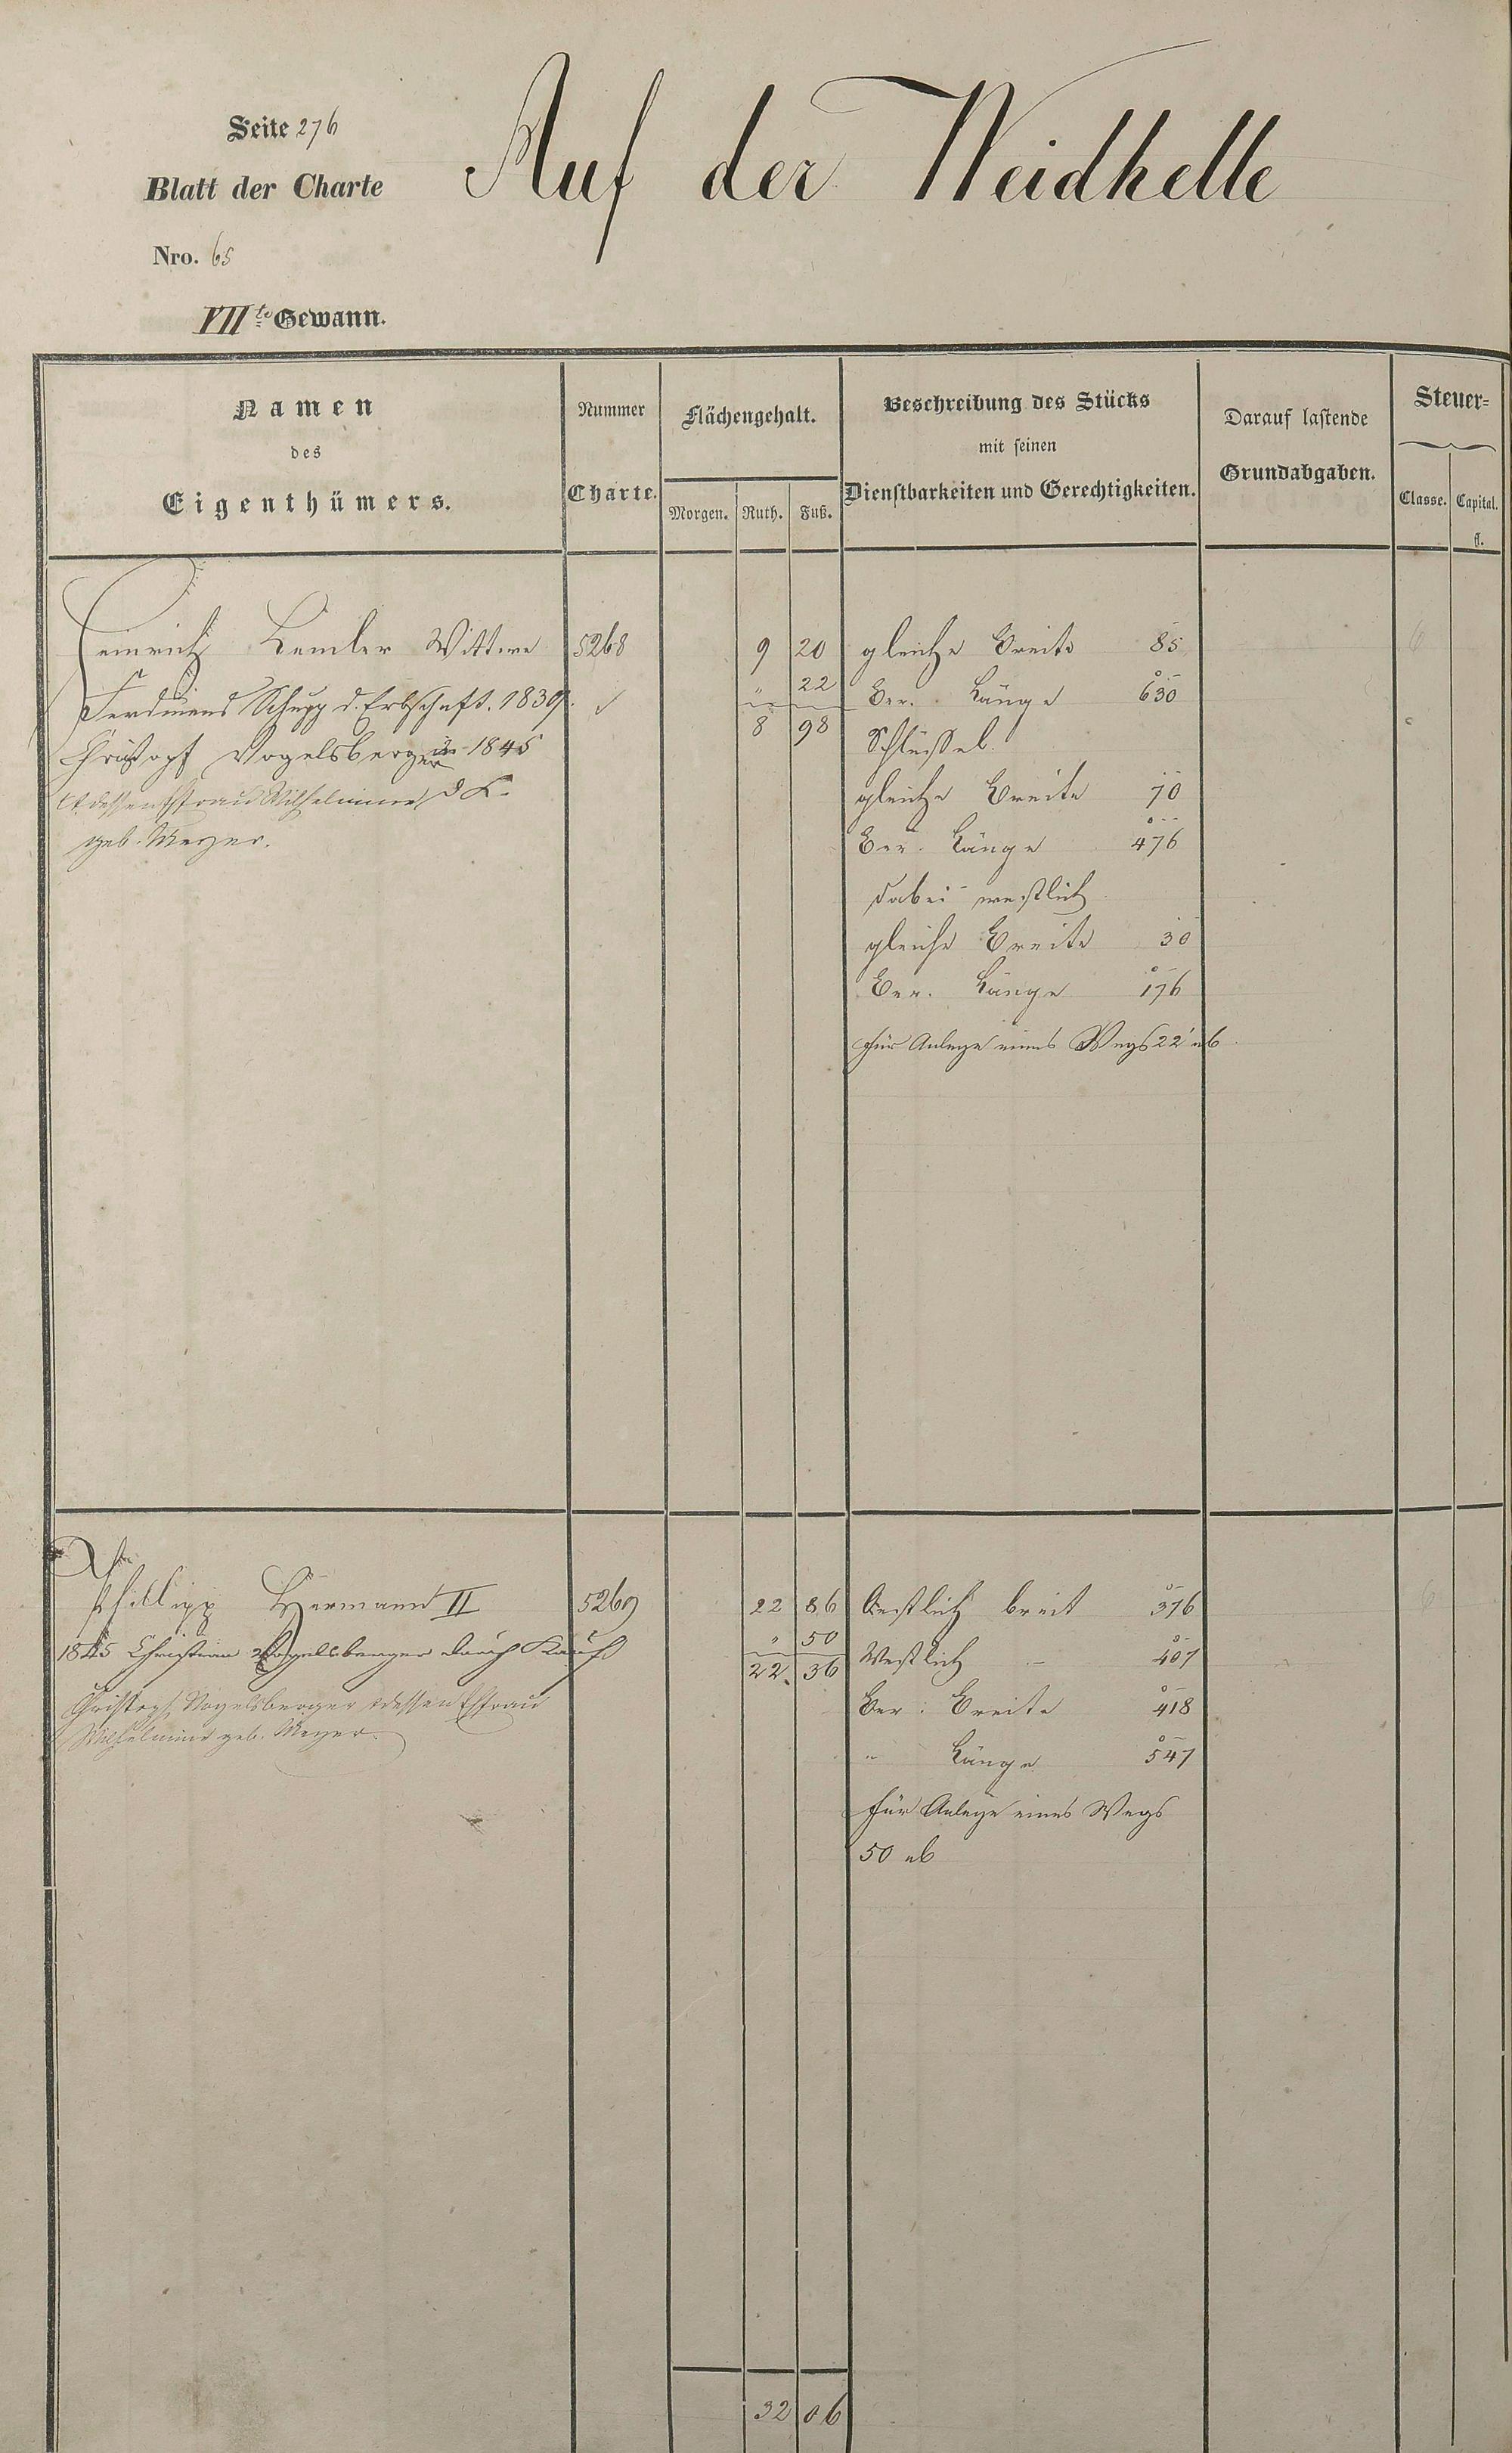 Seite 276
Auf der Weidhelle
Blatt der Charte
Nro. 65
VII te Gewann.
Namen
des
Eigenthümers.
Nummer
Charte.
Flächengehalt.
Morgen. Ruth. Fuß.
Beschreibung des Stücks
mit seinen
Dienstbarkeiten und Gerechtigkeiten.
Darauf lastende
Grundabgaben.
Steuer=
Classe. Capital.
fl.
Heinrich Lemler Wittwe 5268 9 20 gleiche Breite 85
Ferdinand Schupp d. Erbschaft. 1839. " 22 Ber. Länge 630
8 98 Schlüssel.
Christoph Vogelsberger 1845
dessen Ehfrau Wilhelmine d K. gleiche Breite 70
geb. Meyer. Ber. Länge 476
dabei westlich
gleiche Breite 30
Ber. Länge 176
für Anlage eines Wegs 22' ab
Phillipp Hermann II 5269 22 86 Oestlich breit 376
1845 Christian Vogelsberger durch Kauf " 50 Westlich – 407
22. 36
Christoph Vogelsberger & dessen Ehfrau Ber. Breite 418
Wilhelmine geb. Meyer. " Länge 547
für Anlage eines Wegs
50 ab
32 06